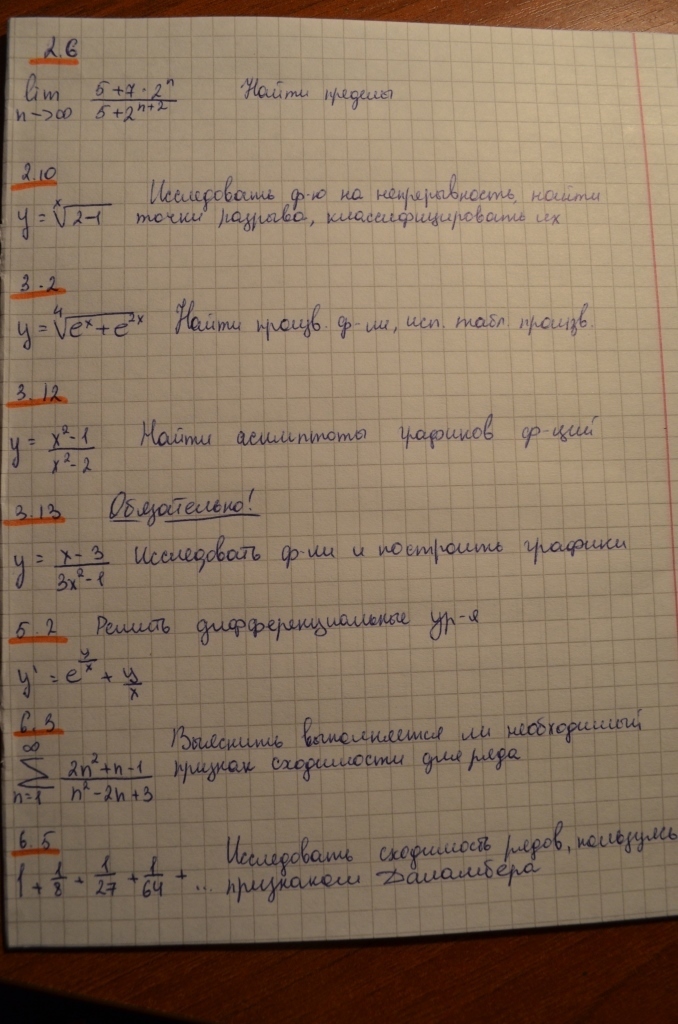 2.6
lim n→∞ (5+7·2^n)/(5+2^(n+2)) Найти пределы
2.10
y = ˣ√(2-1) Исследовать ф-ю на непрерывность, найти
точки разрыва, классифицировать их
3.2
y = ⁴√(e^x + e^(2x)) Найти произв. ф-ии, исп. табл. произв.
3.12
y = (x²-1)/(x²-2) Найти асимптоты графиков ф-ций
3.13 Обязательно!
y = (x-3)/(3x²-1) Исследовать ф-ии и построить графики
5.2 Решить дифференциальные ур-я
y' = e^(y/x) + y/x
6.3
∑_(n=1)^∞ (2n²+n-1)/(n²-2n+3) Выяснить выполняется ли необходимый
признак сходимости для ряда
6.5
1 + 1/8 + 1/27 + 1/64 + ... Исследовать сходимость рядов, пользуясь
признаком Даламбера